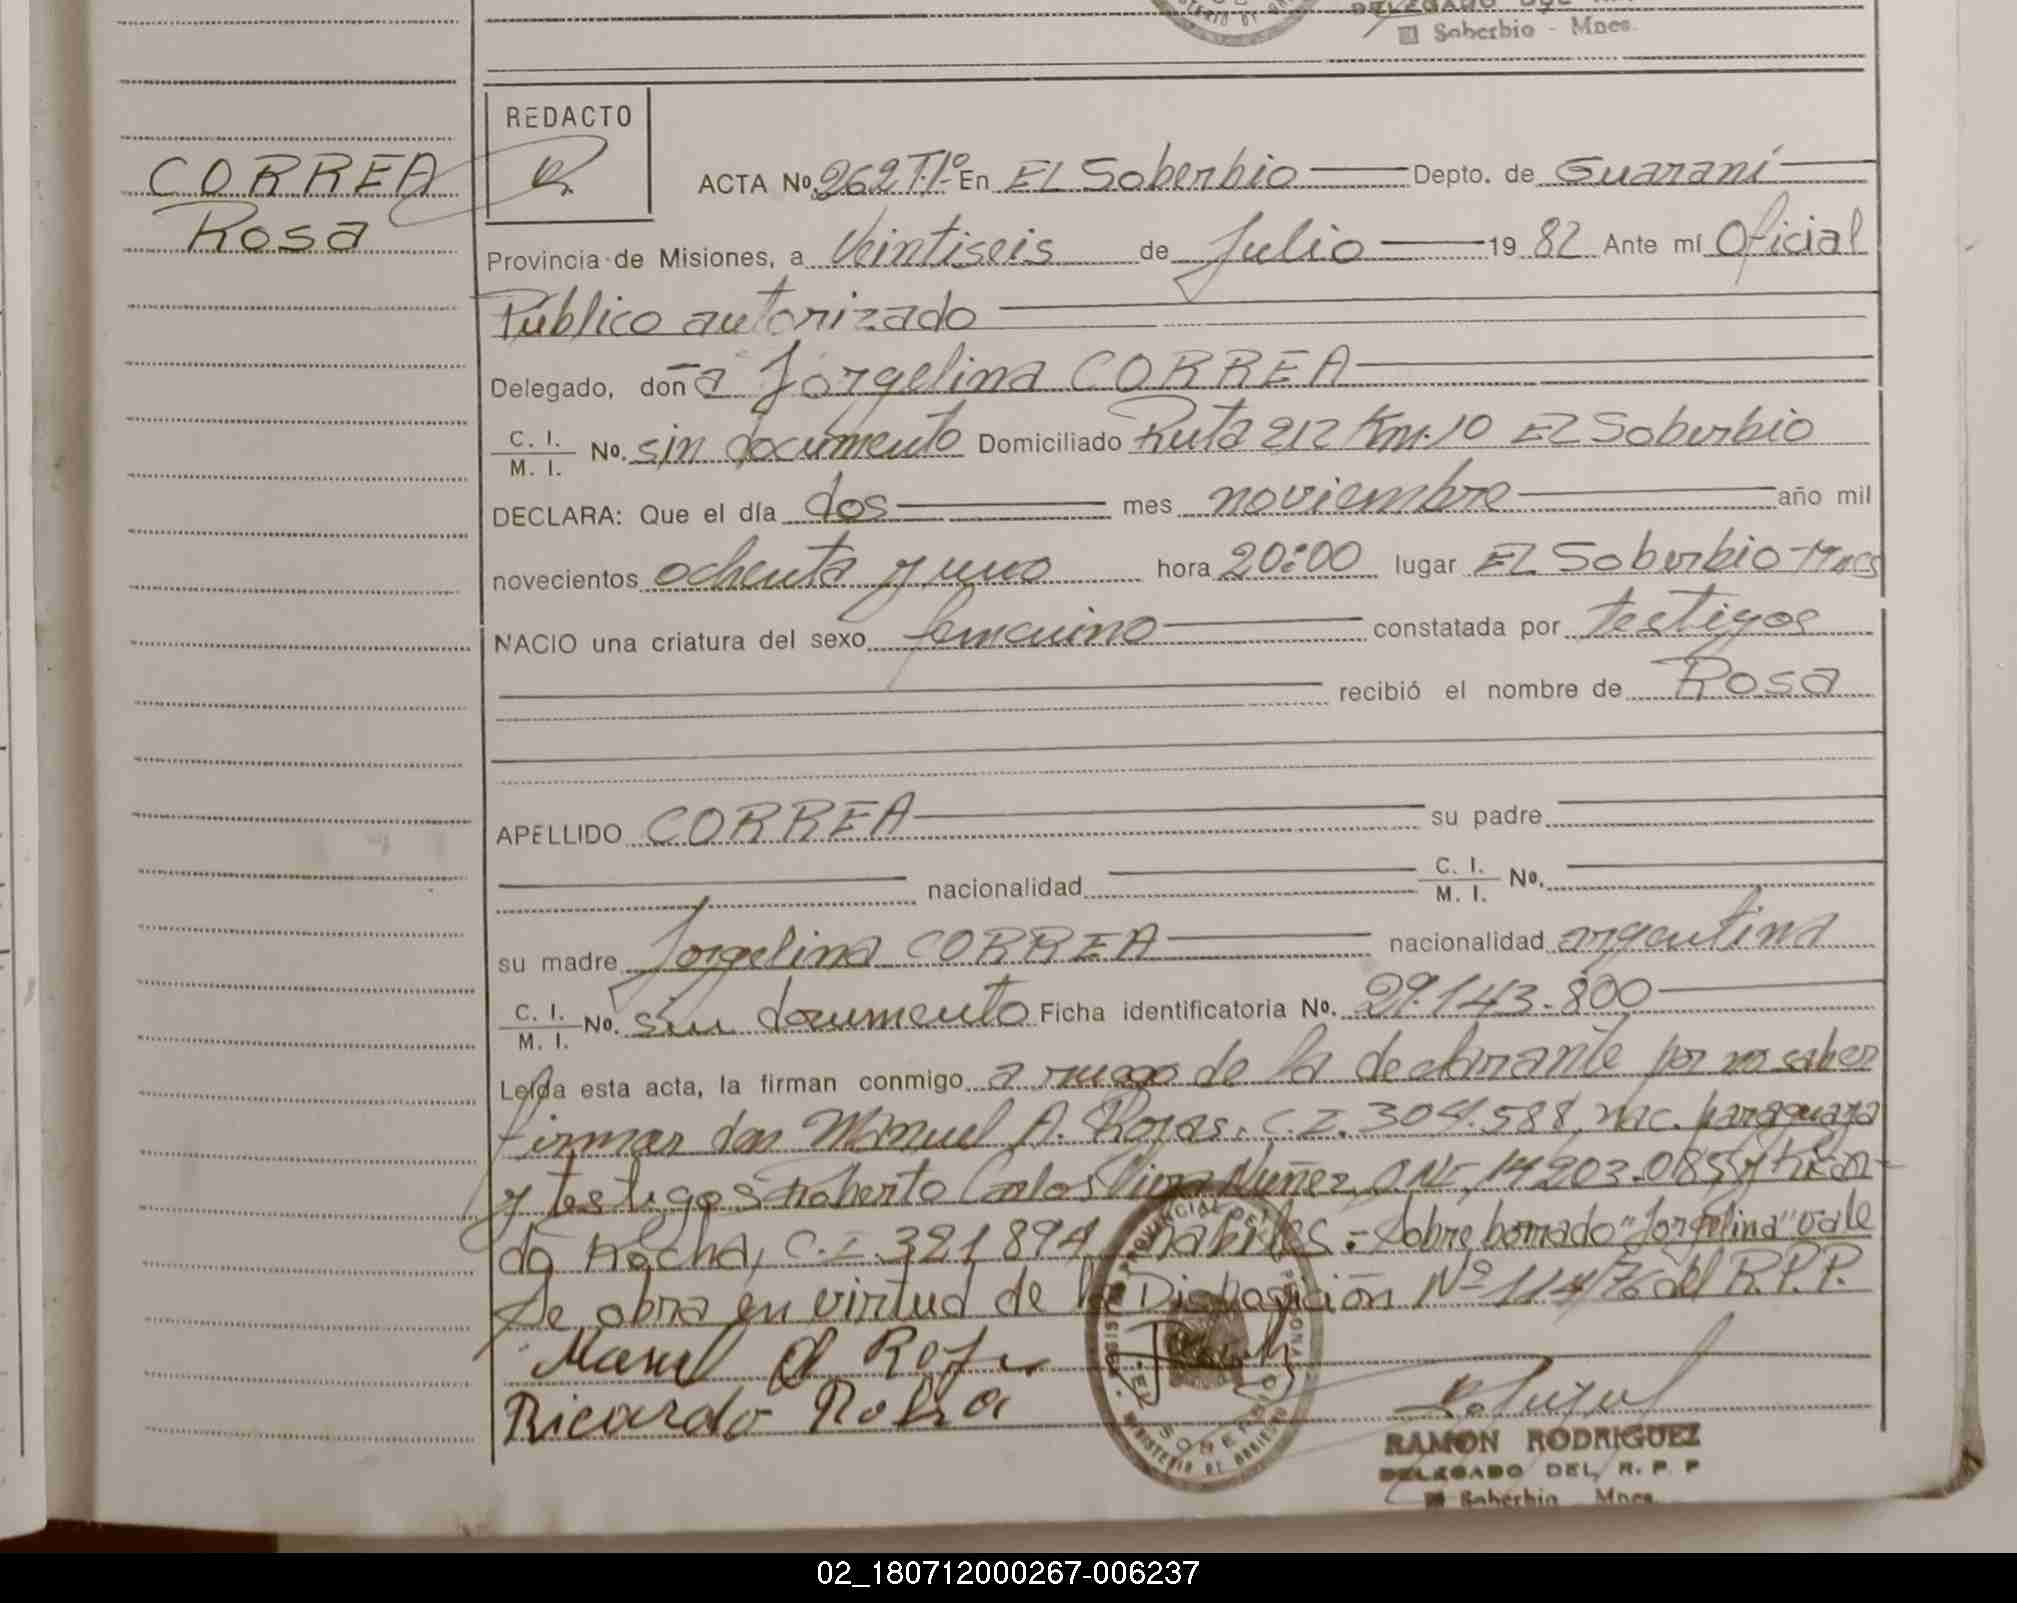 Soberbio - Mnes.
REDACTO
CORREA
Rosa
ACTA No. 262 T.1º En EL Soberbio Depto. de Guaraní
Provincia de Misiones, a Veintiseis de Julio 19 82 Ante mí Oficial
Público autorizado
Delegado, don a Jorgelina CORREA
C. I.
M. I. No. sin documento Domiciliado Ruta 212 Km.10 EL Soberbio
DECLARA: Que el día dos mes noviembre año mil
novecientos ochenta y uno hora 20:00 lugar EL Soberbio Mnes
NACIO una criatura del sexo femenino constatada por testigos
recibió el nombre de Rosa
APELLIDO CORREA su padre
nacionalidad C. I.
M. I. No.
su madre Jorgelina CORREA nacionalidad argentina
C. I.
M. I. No. sin documento Ficha identificatoria No. 29.143.800
Leída esta acta, la firman conmigo a ruego de la declarante por no saber
firmar don Manuel A. Rojas. C.I. 304.588, nac. paraguaya
y testigos Roberto Carlos Nuñez 14203.085 y Ricar-
do Rocha, C.I. 321894 habiles.- Sobre borrado "Jorgelina" vale
Se obra en virtud de la Disposición Nº 114/76 del R.P.P.
Manuel A Rojas
Ricardo Rocha
SOBERBIO
MINISTERIO DE GOBIERNO
RAMON RODRIGUEZ
DELEGADO DEL R. P. P
Soberbio Mnes.
02_180712000267-006237